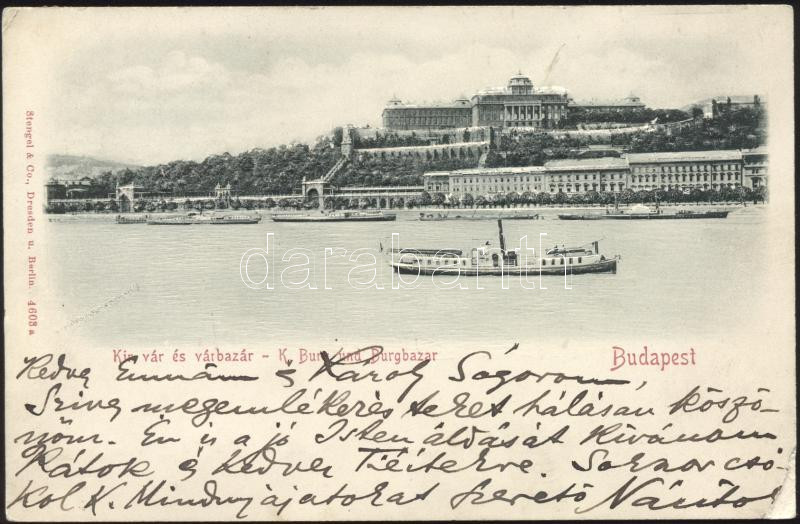 Stengel & Co., Dresden u. Berlin. 4603 a
darabanth
Kir. vár és várbazár – K. Burg und Burgbazar
Budapest
Kedves Emmám és Károly Sógorom,
Szives megemlékezésteket hálásan köszö-
nöm. Én is a jó Isten áldását kivánom
Rátok és kedves Tiéitekre. Soksor csó-
kol K. Mindnyájatokat szerető